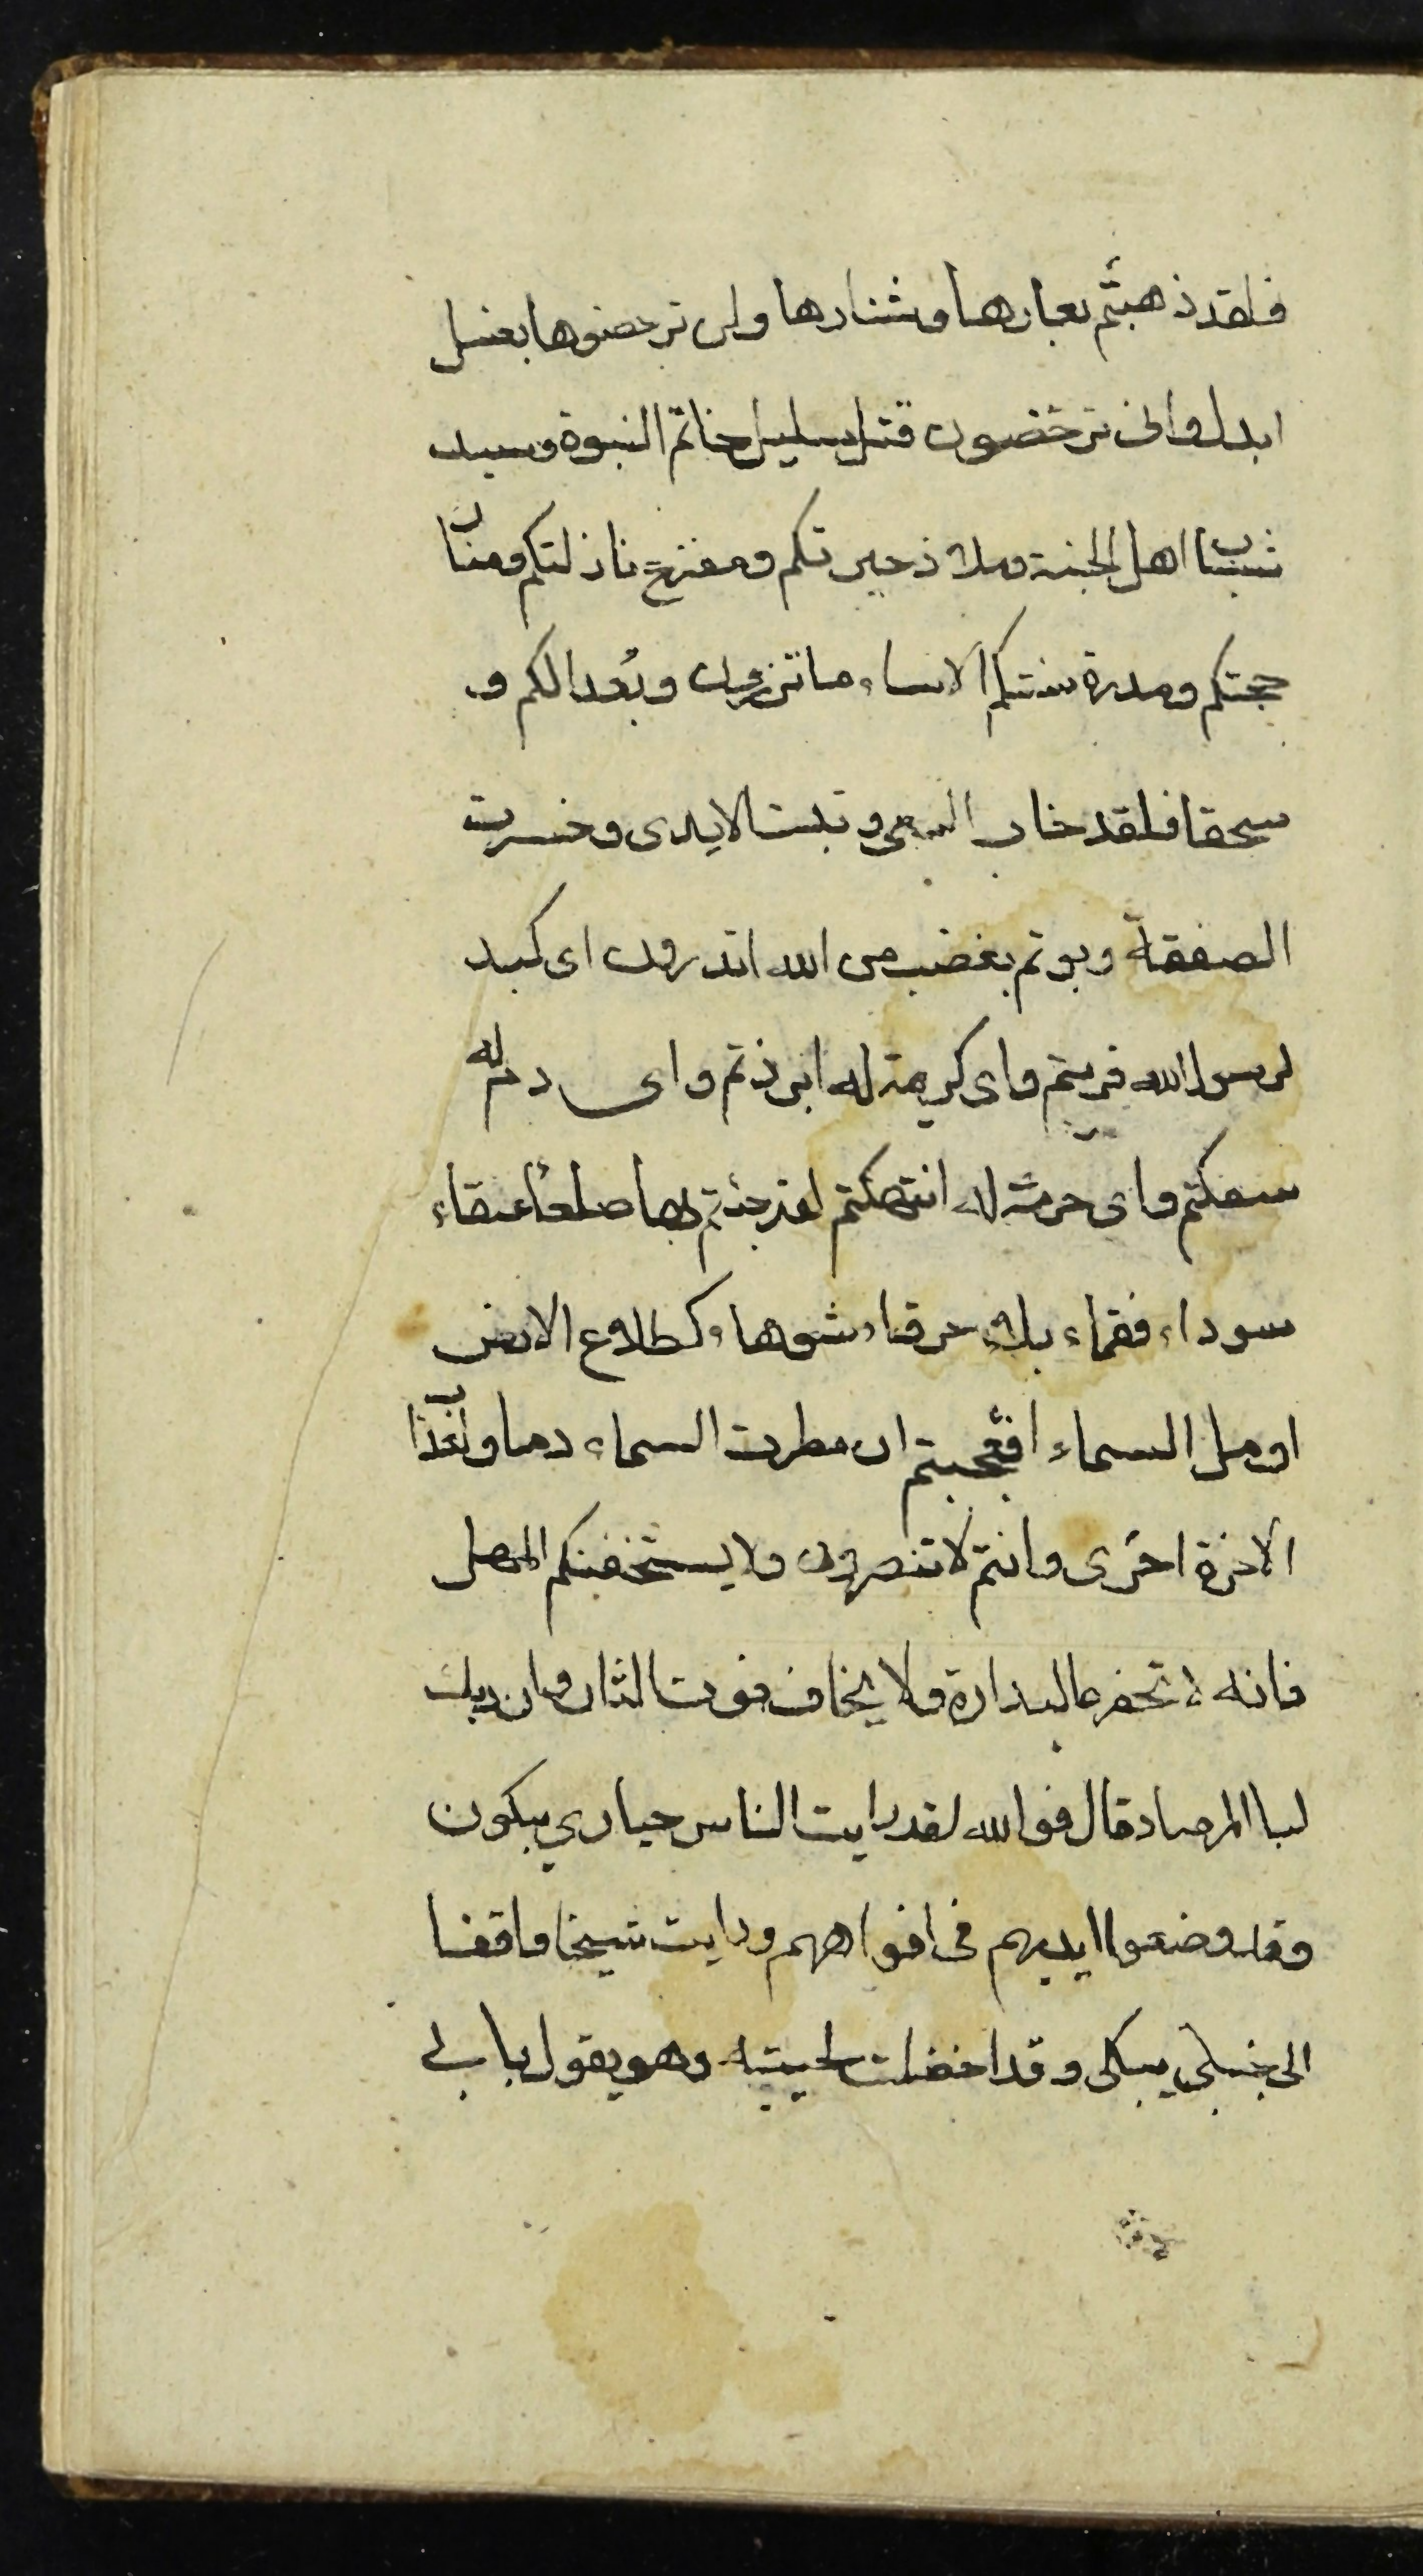 فلقد ذهبتم بعارها وشنارها ولن ترحضوها بغسل
ابدا وانى ترحضون قتل سليل خاتم النبوة وسيد
شباب اهل الجنة وملاذ حيرتكم ومفزع نازلتكم ومنار
حجتكم ومدرة سنتكم الا ساء ما تزرون وبُعدا لكم و
سحقا فلقد خاب السعى وتبت الايدى وخسرت
الصفقة وبوتم بغضب من الله اتدرون اى كبد
لرسول الله فريتم واى كريمة له ابرزتم واى دم له
سفكتم واى حرمة له انتهكتم لقد جئتم بها صلعاء عنقاء
سوداء فقماء خرقاء شوهاء كطلاع الارض
او ملء السماء افعجبتم ان مطرت السماء دما ولعذاب
الاخرة اخزى وانتم لا تنصرون ولا يستخفنكم المهل
فانه لا تحفزه البدارة ولا يخاف فوت الثار وان ربك
لبا المرصاد قال فوالله لقد رايت الناس حيارى يبكون
وقد وضعوا ايديهم فى افواههم ورايت شيخا واقفا
الى جنبى يبكى وقد اخضلت لحيته وهو يقول بابى